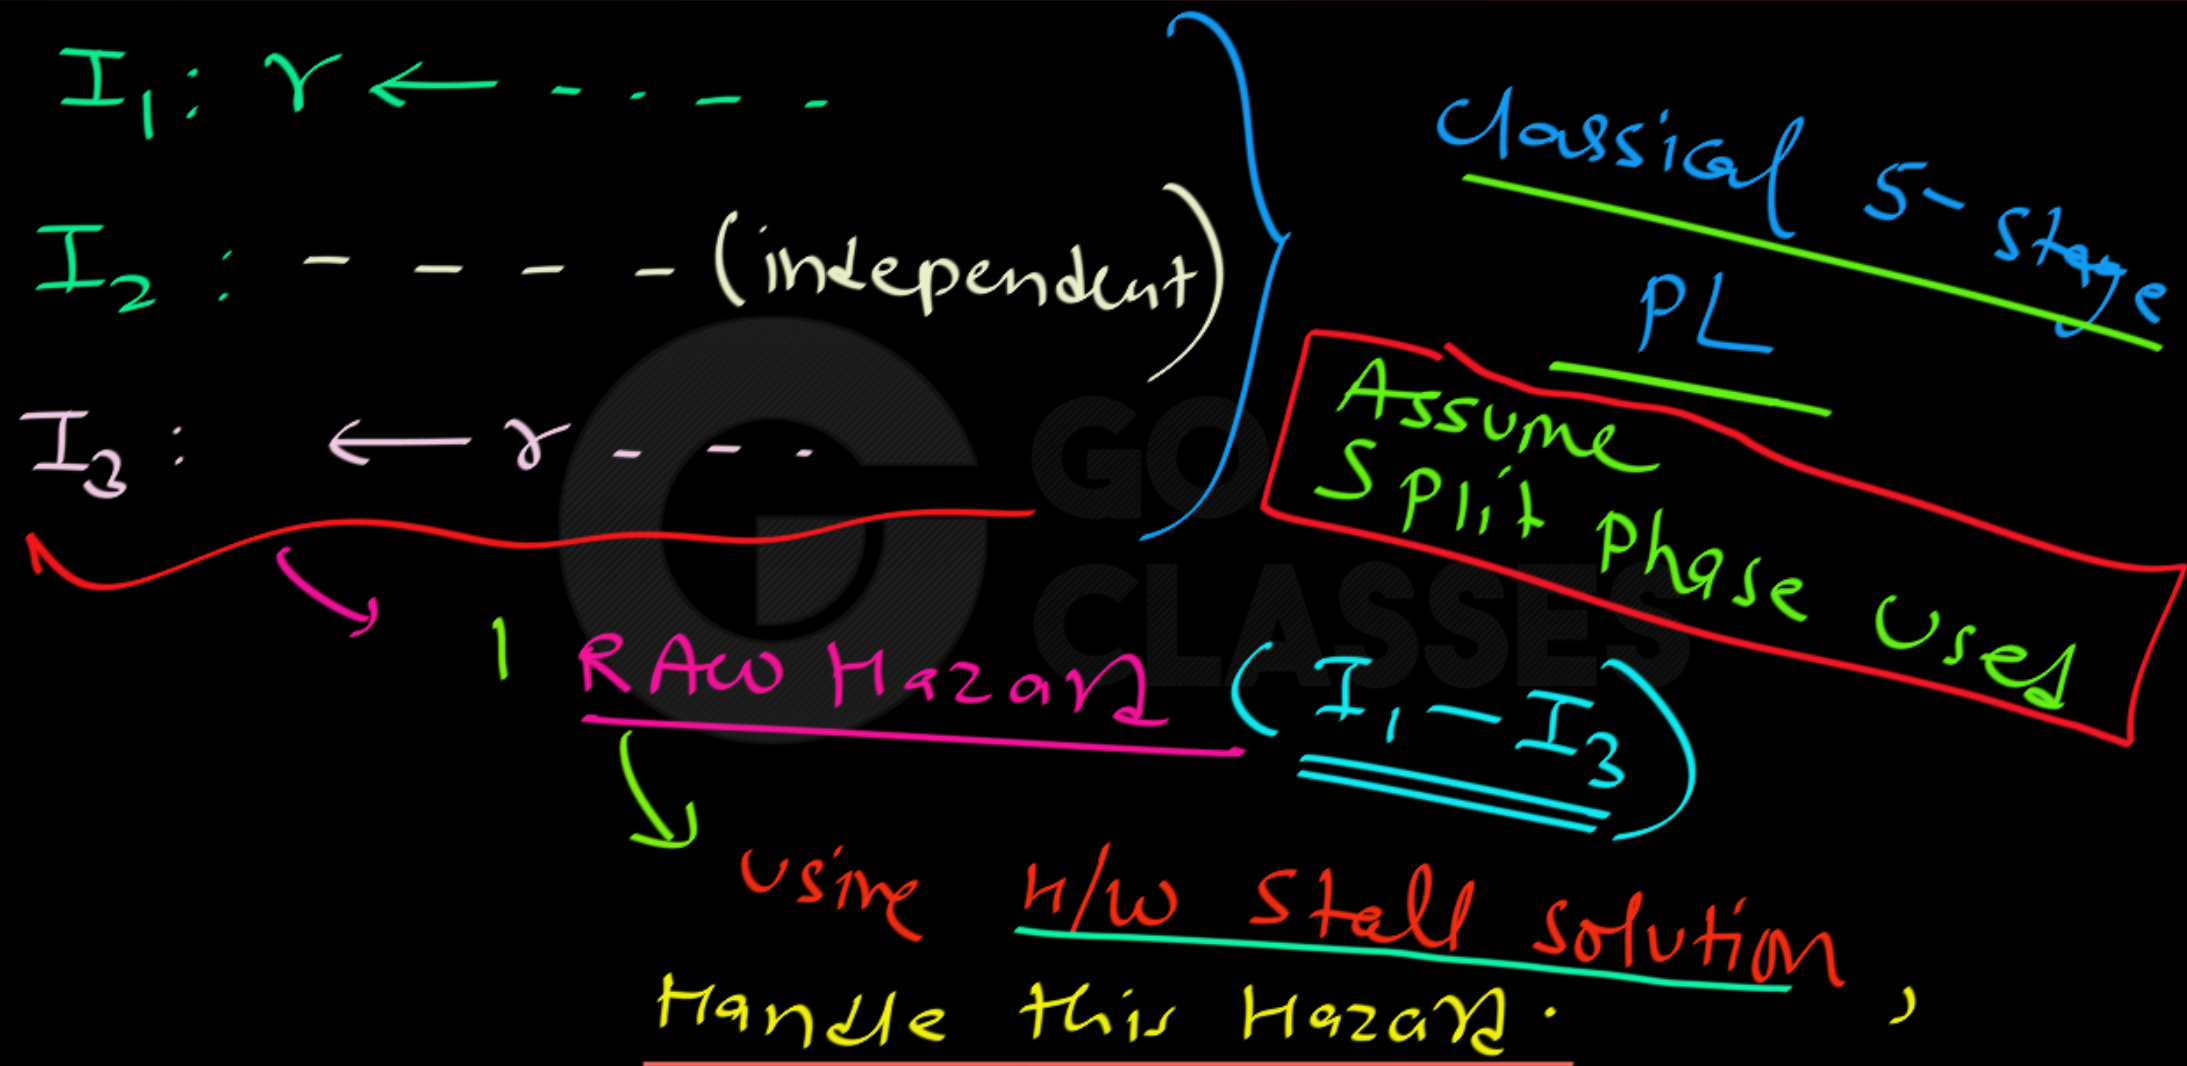 I1: r ← - - - -
I2 : - - - - (independent)
I3 : ← r - - -
Classical 5-stage
PL
Assume
Split Phase Used
GO
CLASSES
1 RAW Hazard (I1 - I3)
Using H/W Stall Solution,
Handle this Hazard.